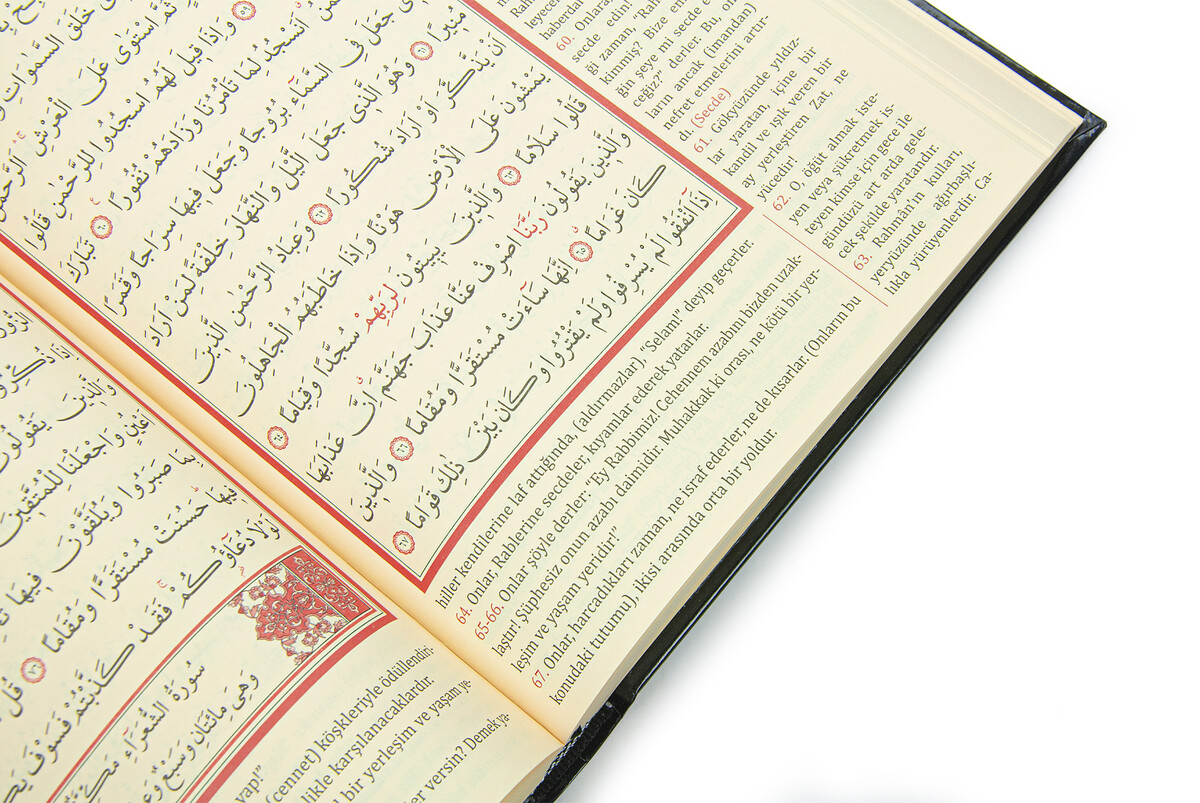 ثُمَّ اسْتَوٰى عَلَى الْعَرْشِ
﴿٥٩﴾ وَاِذَا قٖيلَ لَهُمُ اسْجُدُوا لِلرَّحْمٰنِ قَالُوا
اَنَسْجُدُ لِمَا تَأْمُرُنَا وَزَادَهُمْ نُفُورًا ﴿٦٠﴾ تَبَارَكَ
جَعَلَ فِى السَّمَٓاءِ بُرُوجًا وَجَعَلَ فٖيهَا سِرَاجًا وَقَمَرًا
مُنٖيرًا ﴿٦١﴾ وَهُوَ الَّذٖى جَعَلَ الَّيْلَ وَالنَّهَارَ خِلْفَةً لِمَنْ اَرَادَ
اَنْ يَذَّكَّرَ اَوْ اَرَادَ شُكُورًا ﴿٦٢﴾ وَعِبَادُ الرَّحْمٰنِ الَّذٖينَ
يَمْشُونَ عَلَى الْاَرْضِ هَوْنًا وَاِذَا خَاطَبَهُمُ الْجَاهِلُونَ
قَالُوا سَلَامًا ﴿٦٣﴾ وَالَّذٖينَ يَبٖيتُونَ لِرَبِّهِمْ سُجَّدًا وَقِيَامًا ﴿٦٤﴾
وَالَّذٖينَ يَقُولُونَ رَبَّنَا اصْرِفْ عَنَّا عَذَابَ جَهَنَّمَ اِنَّ عَذَابَهَا
كَانَ غَرَامًا ﴿٦٥﴾ اِنَّهَا سَٓاءَتْ مُسْتَقَرًّا وَمُقَامًا ﴿٦٦﴾ وَالَّذٖينَ
اِذَٓا اَنْفَقُوا لَمْ يُسْرِفُوا وَلَمْ يَقْتُرُوا وَكَانَ بَيْنَ ذٰلِكَ قَوَامًا ﴿٦٧﴾
haberdar
60. Onlara,
secde edin!
ği zaman, "Rah
kimmiş? Bize em
ğin şeye mi secde e
ceğiz" derler. Bu, on
ların ancak (imandan)
nefret etmelerini artır-
dı. (Secde)
61. Gökyüzünde yıldız-
lar yaratan, içine bir
kandil ve ışık veren bir
ay yerleştiren Zat, ne
yücedir!
62. O, öğüt almak iste-
yen veya şükretmek is-
teyen kimse için gece ile
gündüzü art arda gele-
cek şekilde yaratandır.
63. Rahmân'ın kulları,
yeryüzünde ağırbaşlı-
lıkla yürüyenlerdir. Ca-
hiller kendilerine laf attığında, (aldırmazlar), "Selam!" deyip geçerler.
64. Onlar, Rablerine secdeler, kıyamlar ederek yatarlar.
65-66. Onlar şöyle derler: "Ey Rabbimiz! Cehennem azabını bizden uzak-
laştır! Şüphesiz onun azabı daimidir. Muhakkak ki orası, ne kötü bir yer-
leşim ve yaşam yeridir!"
67. Onlar, harcadıkları zaman, ne israf ederler, ne de kısarlar. (Onların bu
konudaki tutumu), ikisi arasında orta bir yoldur.
وَالَّذٖينَ يَقُولُونَ
اَعْيُنٍ وَاجْعَلْنَا لِلْمُتَّقٖينَ
بِمَا صَبَرُوا وَيُلَقَّوْنَ فٖيهَا
فٖيهَا حَسُنَتْ مُسْتَقَرًّا وَمُقَامًا ﴿٧٦﴾ قُلْ
لَوْلَا دُعَٓاؤُكُمْ فَقَدْ كَذَّبْتُمْ فَسَوْفَ
سُورَةُ الشُّعَرَاءِ
وَهِىَ مِائَتَانِ وَسَبْعٌ
(cennet) köşkleriyle ödüllendiri-
likle karşılanacaklardır.
bir yerleşim ve yaşam ye-
vap!"
er versin? Demek ya-